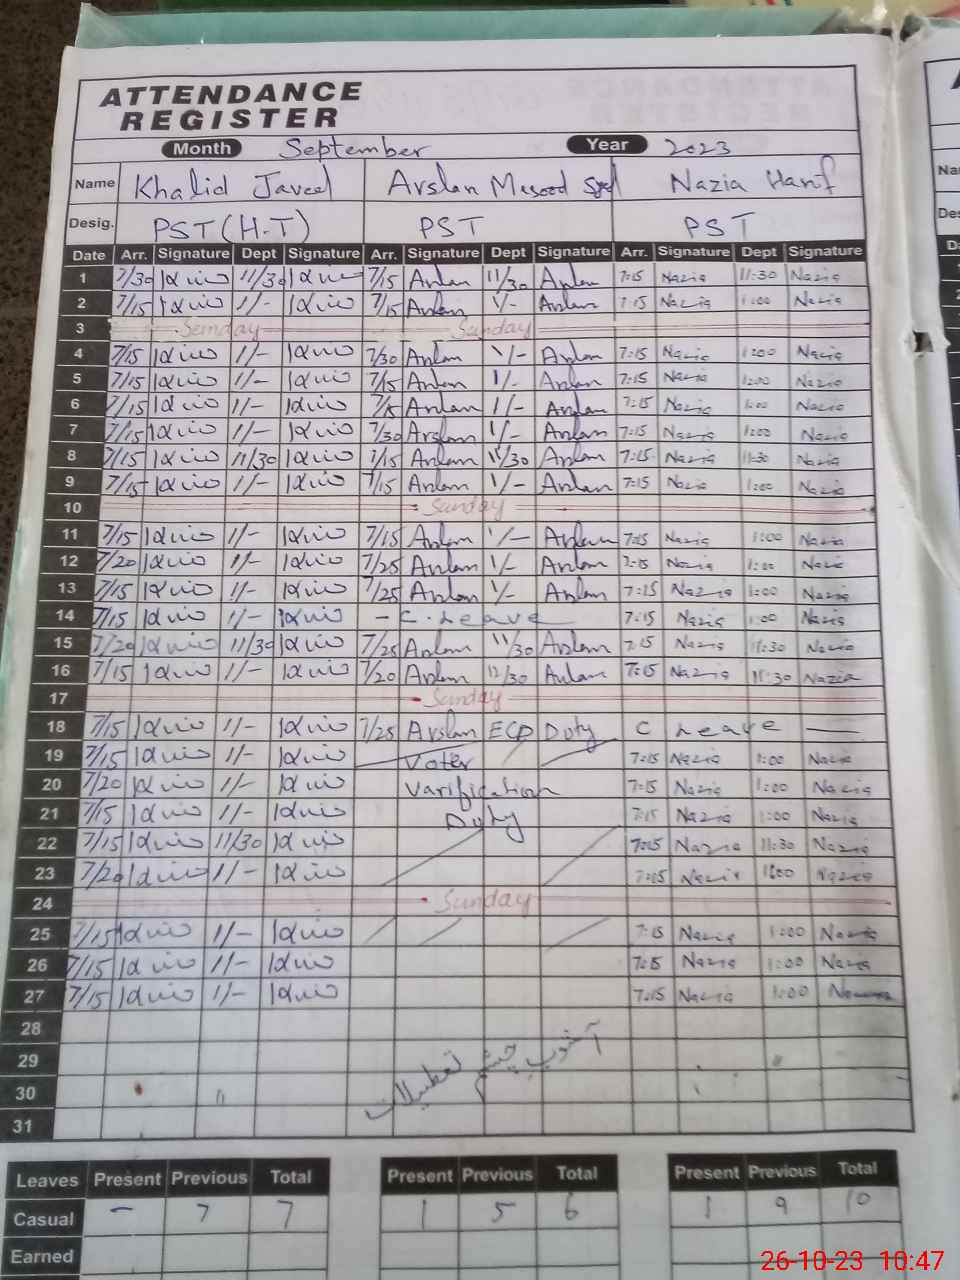 ATTENDANCE
REGISTER
Month September Year 2023
Name Khalid Javed Arslan Masood Syed Nazia Hanif
Desig. PST (H-T) PST PST
Date Arr. Signature Dept Signature Arr. Signature Dept Signature Arr. Signature Dept Signature
1 7/30 11/30 7/15 Arslan 11/30 Arslan 7:15 Nazia 11:30 Nazia
2 7/15 1/- 7/15 Arslan 1/- Arslan 7:15 Nazia 1:00 Nazia
3 Sunday Sunday
4 7/15 1/- 7/30 Arslan 1/- Arslan 7:15 Nazia 1:00 Nazia
5 7/15 1/- 7/15 Arslan 1/- Arslan 7:15 Nazia 1:00 Nazia
6 7/15 1/- 7/15 Arslan 1/- Arslan 7:15 Nazia 1:00 Nazia
7 7/15 1/- 7/30 Arslan 1/- Arslan 7:15 Nazia 1:00 Nazia
8 7/15 11/30 7/15 Arslan 11/30 Arslan 7:15 Nazia 11:30 Nazia
9 7/15 1/- 7/15 Arslan 1/- Arslan 7:15 Nazia 1:00 Nazia
10 Sunday
11 7/15 1/- 7/15 Arslan 1/- Arslan 7:15 Nazia 1:00 Nazia
12 7/20 1/- 7/25 Arslan 1/- Arslan 7:15 Nazia 1:00 Nazia
13 7/15 1/- 7/25 Arslan 1/- Arslan 7:15 Nazia 1:00 Nazia
14 7/15 1/- - C. Leave 7:15 Nazia 1:00 Nazia
15 7/20 11/30 7/25 Arslan 11/30 Arslan 7:15 Nazia 11:30 Nazia
16 7/15 1/- 7/20 Arslan 12/30 Arslan 7:15 Nazia 11:30 Nazia
17 Sunday
18 7/15 1/- 7/25 Arslan ECP Duty C Leave
19 7/15 1/- Voter 7:15 Nazia 1:00 Nazia
20 7/20 1/- Varification 7:15 Nazia 1:00 Nazia
21 7/15 1/- Duty 7:15 Nazia 1:00 Nazia
22 7/15 11/30 7:15 Nazia 11:30 Nazia
23 7/20 1/- 7:15 Nazia 1:00 Nazia
24 Sunday
25 7/15 1/- 7:15 Nazia 1:00 Nazia
26 7/15 1/- 7:15 Nazia 1:00 Nazia
27 7/15 1/- 7:15 Nazia 1:00 Nazia
28
29
30
آشوب چشم تعطیلات
31
Leaves Present Previous Total Present Previous Total Present Previous Total
Casual - 7 7 1 5 6 1 9 10
Earned
26-10-23 10:47